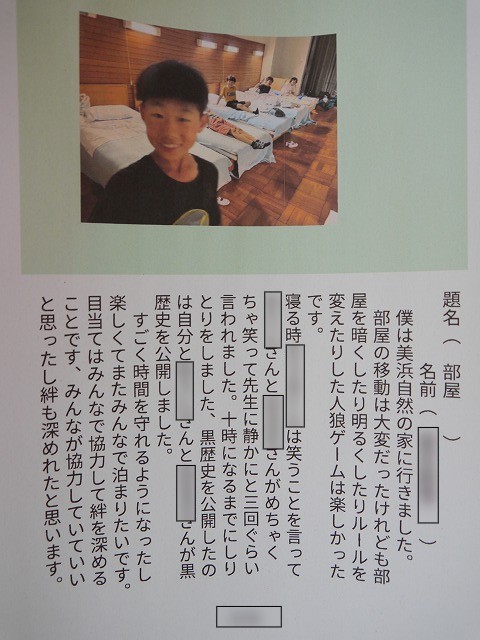 題名(部屋)
名前( )
僕は美浜自然の家に行きました。
部屋の移動は大変だったけれども部
屋を暗くしたり明るくしたりルールを
変えたりした人狼ゲームは楽しかった
です。
寝る時 は笑うことを言って
さんと さんがめちゃく
ちゃ笑って先生に静かにと三回ぐらい
言われました。十時になるまでにしり
とりをしました、黒歴史を公開したの
は自分と さんと さんが黒
歴史を公開しました。
すごく時間を守れるようになったし
楽しくてまたみんなで泊まりたいです。
目当てはみんなで協力して絆を深める
ことです、みんなが協力していていい
と思ったし絆も深めれたと思います。